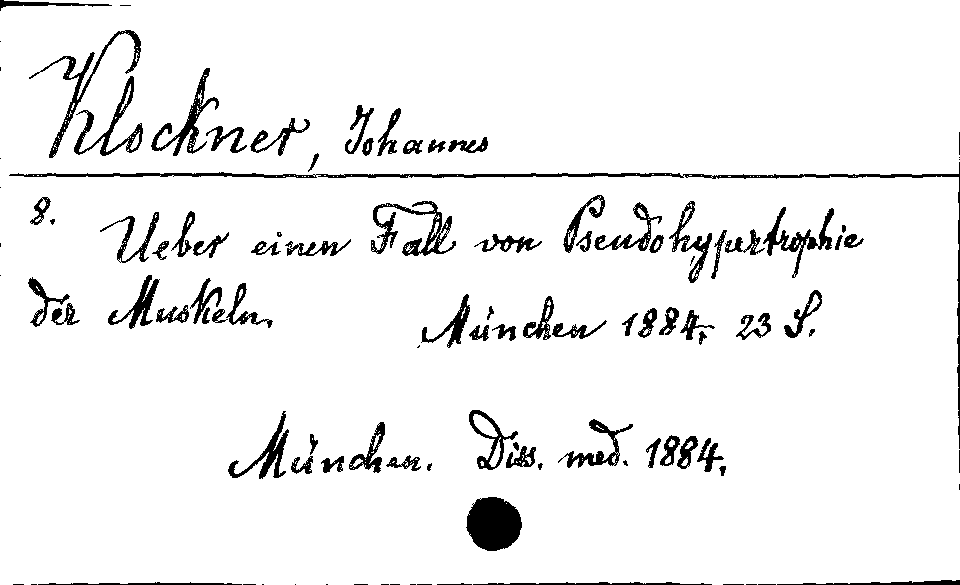 Klockner, Johannes
8.
Ueber einen Fall von Pseudohypertrophie
der Muskeln.
München 1884. 23 S.
München. Diss. med. 1884.